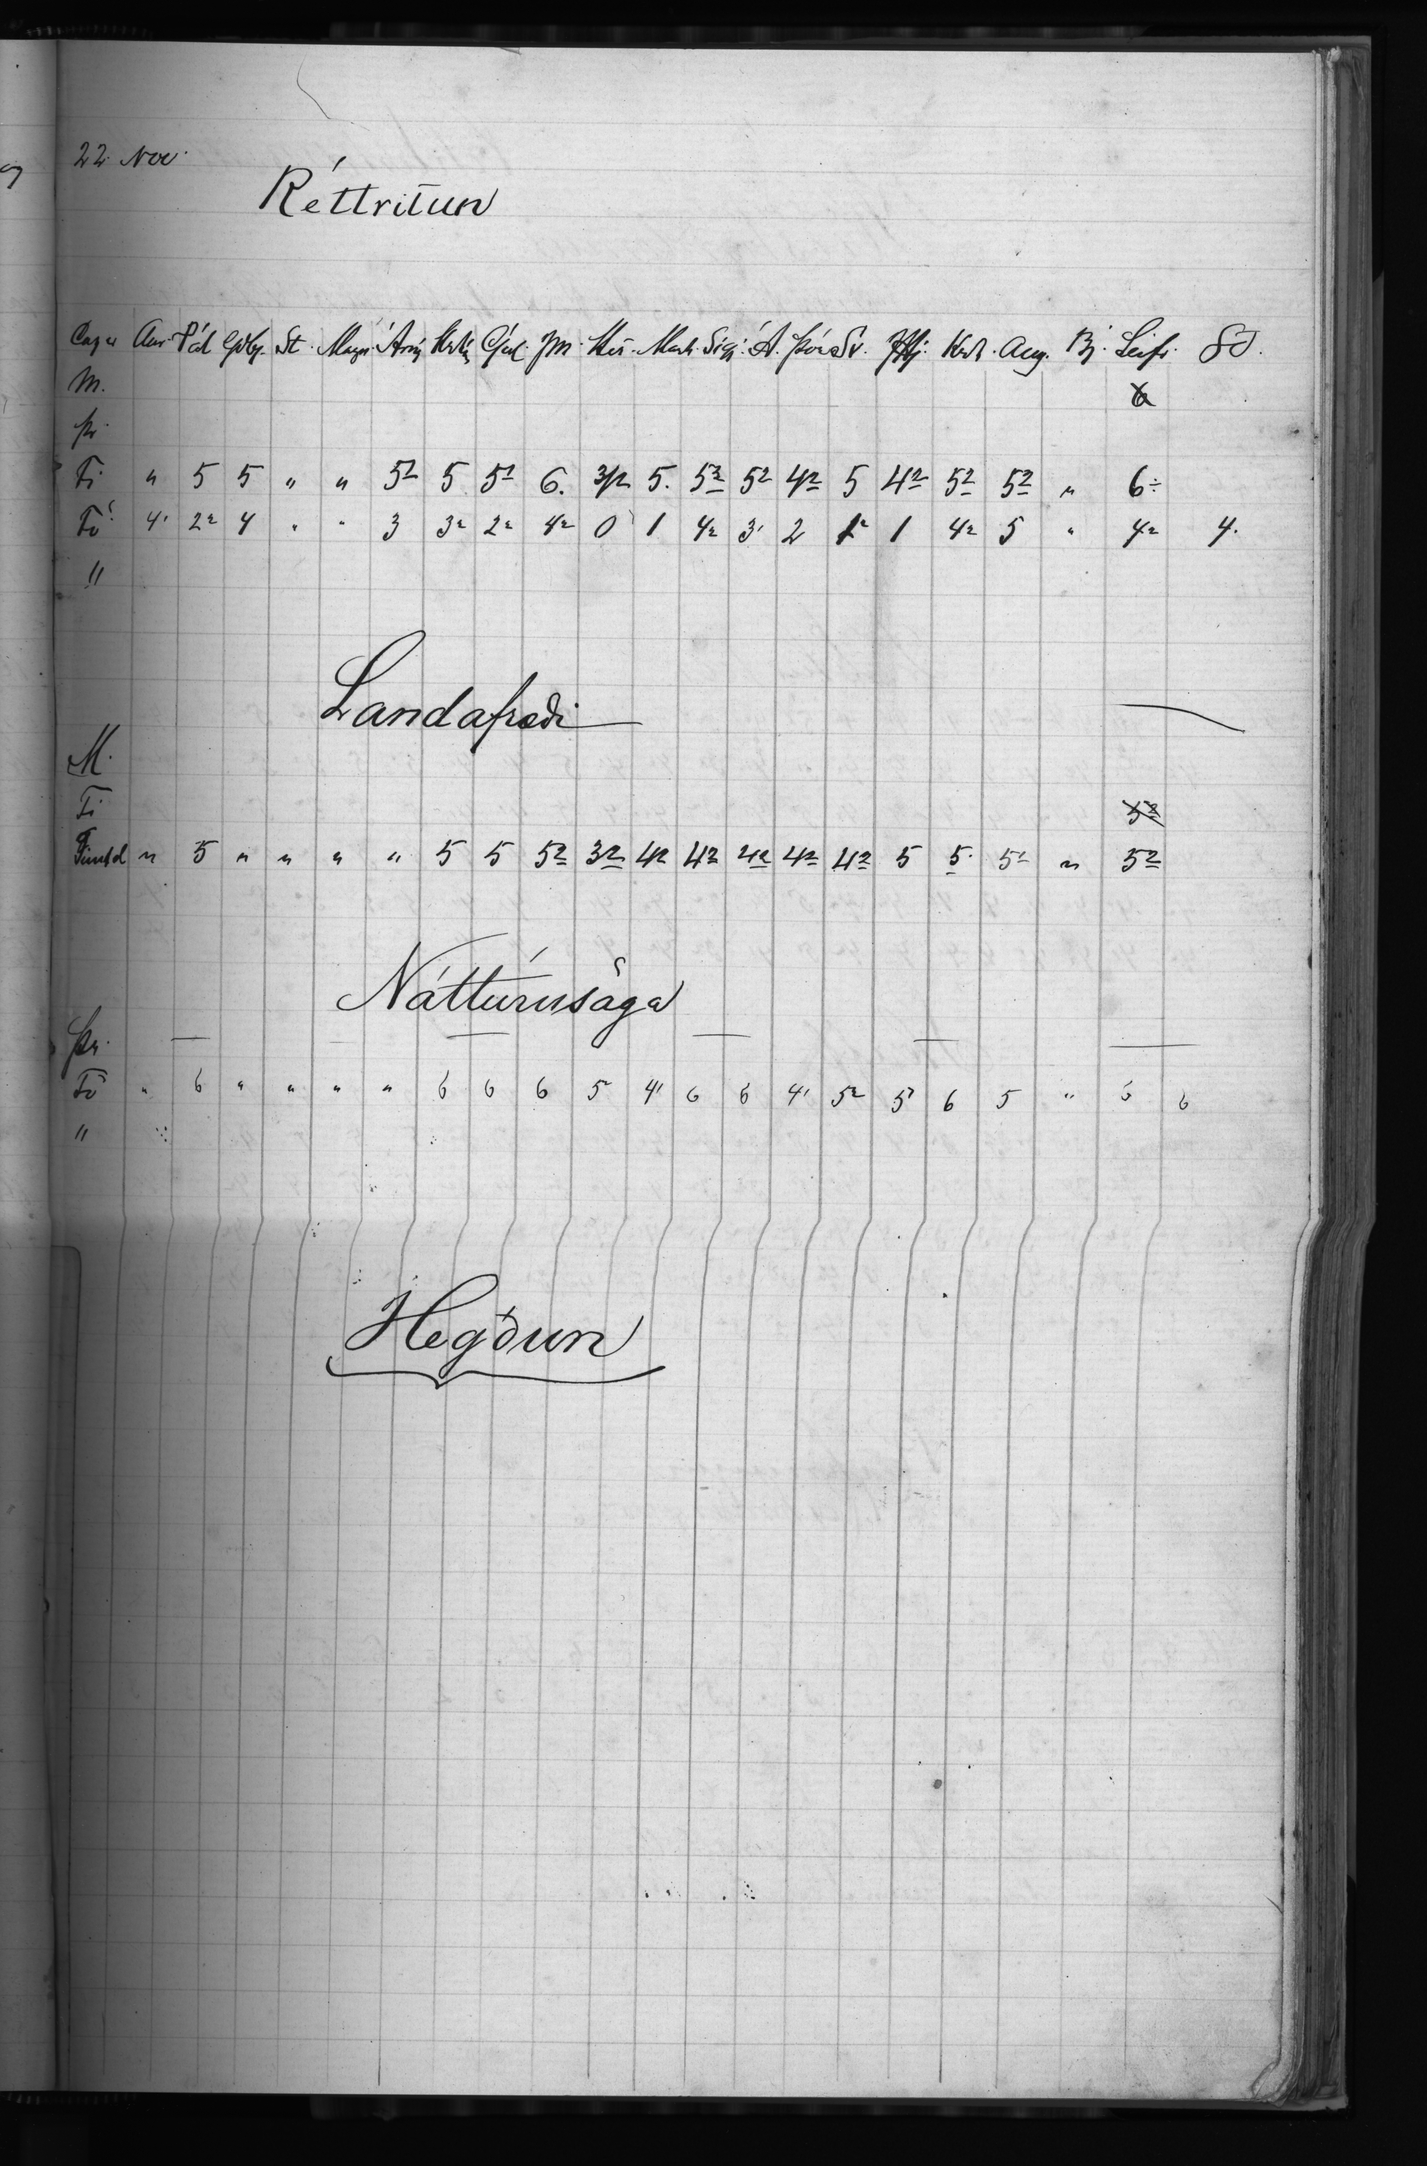 22 Nov.
Réttritun
Pál St. Magn. Árn. JM. Mart. Sigr. Á. Þór. Sv. Aug. Bj. Leifr.
M.
Þr.
Fi " 5 5 " " 5² 5 5² 6. 3½ 5. 5² 5² 4² 5 4² 5² 5² " 6÷
Fö 4' 2² 4 " " 3 3² 2² 4² 0 1 4² 3' 2 1 4² 5 " 4² 4.
"
Landafræði
M.
Fi 5²
Fimtd " 5 " " " " 5 5 5² 3² 4² 4² 4² 4² 4² 5 5. 5² " 5²
Náttúrusaga
Þr.
Fö " 6 " " " " 6 6 6 5 4' 6 6 4' 5² 5² 6 5 " 6 6
"
Hegðun